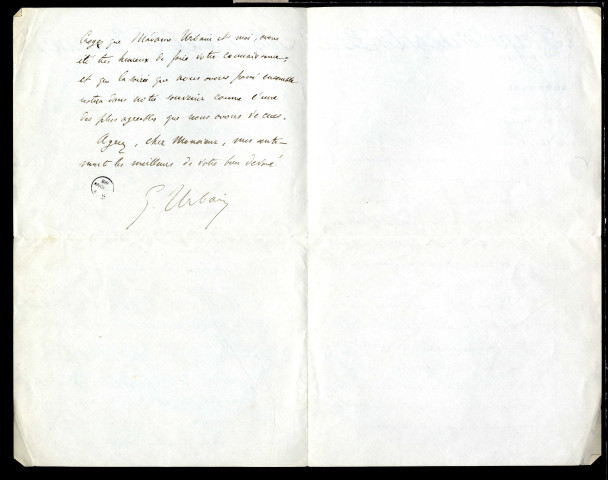 Croyez que Madame Urbain et moi, avons
été très heureux de faire votre connaissance,
et que la soirée que nous avons passé ensemble
restera dans notre souvenir comme l'une
des plus agréables que nous avons vécues.
Agréez, cher Monsieur, mes senti-
ments les meilleurs de votre bien dévoué
G. Urbain